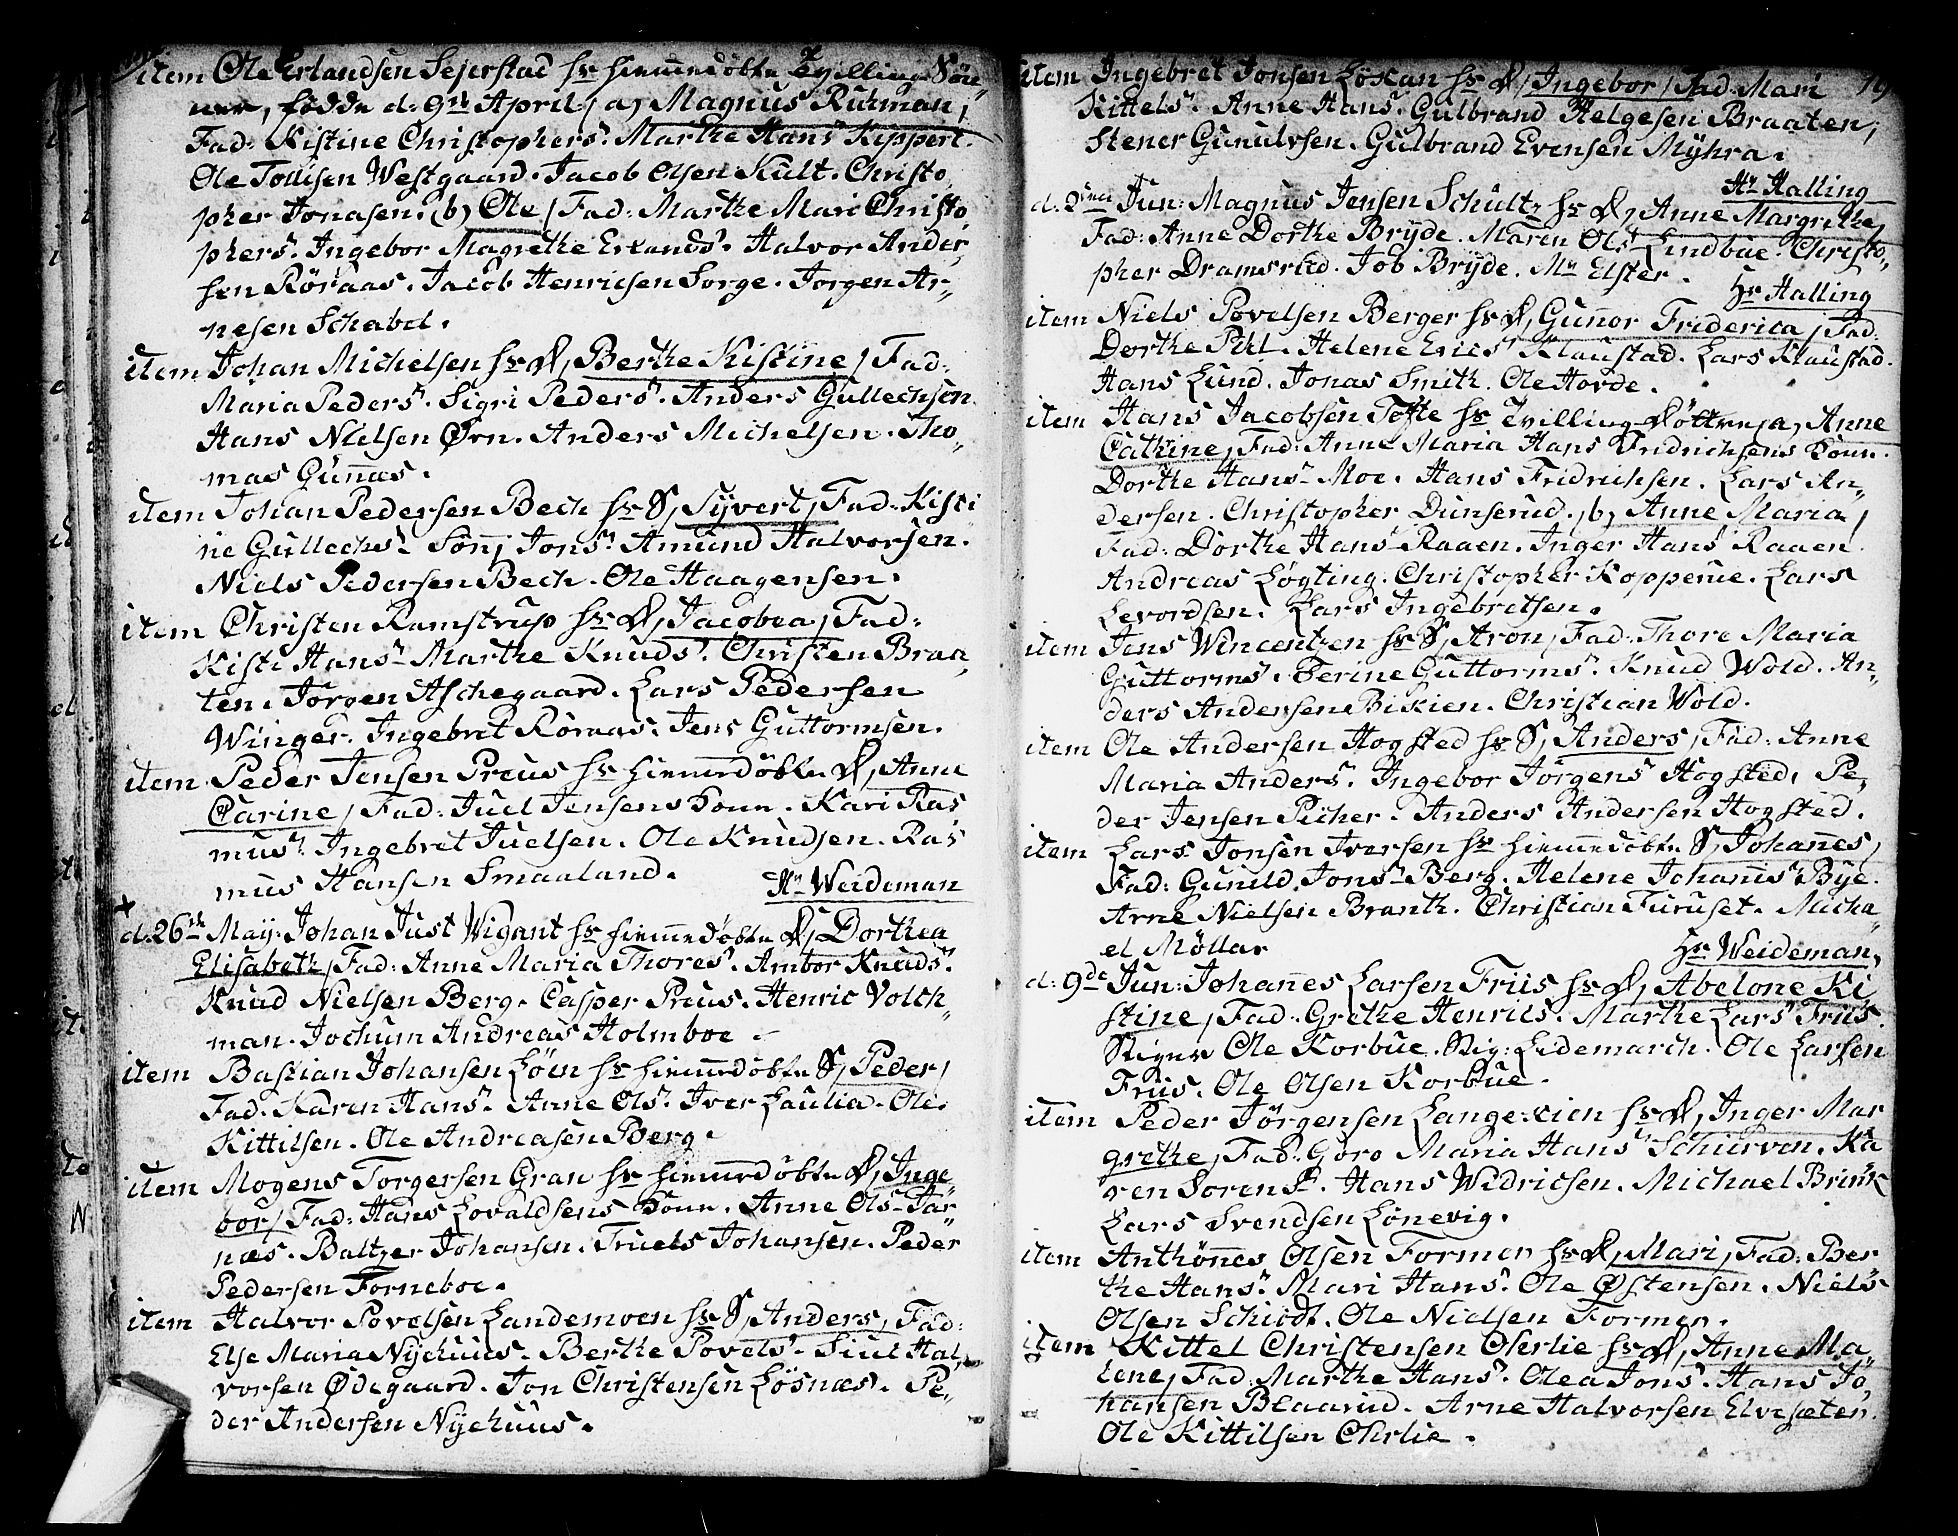 item Ole Erlandsen Sejerstad hs hiemmedøbte Tvilling Søn-
ner, fødde d: 9de April, a, Magnus Ruhman,
Fad: Kistine Christophers. Marthe Hans Kippert.
Ole Tollisen Westgaard. Jacob Olsen Kult. Christo
pher Jonasen. b, Ole, Fad: Marthe Mari Christo
phers. Ingebor Magrethe Erlands. Halvor Ander
sen Röraas. Jacob Henricsen Sorge. Jörgen Ar-
nesen Schabel.
item Johan Michelsen hs D, Berthe Kistine, Fad:
Maria Peders. Sigri Peders. Anders Gullechsen
Hans Nielsen Ørn. Anders Michelsen. Tho,
mas Guñæs.
item Johan Pedersen Bech hs S, Syvert, Fad: Kisti
ne Gullechs. Sönj Jons. Amund Halvorsen.
Niels Pedersen Bech. Ole Haagensen.
item Christen Ramstrup hs D, Jacobea, Fad:
Kisti Hans. Marthe Knuds. Christen Braa,
ten. Jörgen Aschegaard. Lars Pedersen
Winger. Ingebret Röraas. Jens Guttormsen.
item Peder Jensen Preus hs hiemmedøbte D, Anne
Carine, Fad: Juel Jensens Konn. Kari Ras
mus. Ingebret Juelsen. Ole Knudsen. Ras
mus Hansen Smaaland.
Hr Weideman
d: 26th May: Johan Just Wigant hs hiemmedøbte D, Dorthea
Elisabeth, Fad: Anne Maria Thores. Ambor Knuds.
Knud Nielsen Berg. Casper Preus. Henric Volck-
man. Jochum Andreas Holmboe.
item Bastian Johansen Löen hs hiemmedøbte S, Peder,
Fad: Karen Hans. Anne Ols. Iver Laulia. Ole
Kittilsen. Ole Andreasen Berg.
item Mogens Torgersen Gran hs hiemmedøbte D, Inge
bor, Fad: Hans Lovaldsens Konn. Anne Ols Tar
næs. Baltzer Johansen. Truels Johansen. Peder
Pedersen Forneboe.
item Halvor Povelsen Landemoen hs S, Anders, Fad:
Else Maria Nyehuus. Berthe Povels. Siul Hal,
vorsen Ødegaard. Jon Christensen Lösnæs. Pe,
der Andersen Nyehuus.
item Ingebret Jonsen Löxan hs D, Ingebor, Fad: Mari
Kittels. Anne Hans. Gulbrand Helgesen Braaten,
Stener Gunulvsen. Gulbrand Evensen Myhra.
Hr Halling
d: 2den Jun: Magnus Jensen Schultz hs D, Anne Margrethe,
Fad: Anne Dorthe Bryde. Maren Ols Lindbae. Christo,
pher Dramsrud. Job Bryde. Mr Elster.
Hr Halling
item Niels Povelsen Berger hs D, Guñor Friderica, Fad:
Dorthe Pihl. Helene Erics Klaustad. Lars Klaustad.
Hans Lund. Jonas Smith. Ole Hovde.
item Hans Jacobsen Tofte hs Tvilling Døttre, a, Anne
Cathrine, Fad: Anne Maria Hans Fridrichsens Konn.
Dorthe Hans Moe. Hans Fridrichsen. Lars An,
dersen. Christopher Dunserud. b, Anne Maria,
Fad: Dorthe Hans Raaen. Inger Hans Raaen
Andreas Løgting. Christopher Kopperue. Lars
Levordsen. Lars Ingebretsen.
item Jens Wincentzen hs S, Aron, Fad: Thore Maria
Guttorms. Terine Guttorms. Knud Wold. An,
ders Andersen Bikien. Christian Wold.
item Ole Andersen Hogsted hs S, Anders, Fad: Anne
Maria Anders. Ingebor Jörgens Hogsted. Pe,
der Jensen Picher. Anders Andersen Hogsted.
item Lars Jonsen Iversen hs hiemmedøbte S, Johañes,
Fad: Gunild Jons Berg. Helene Johañis Bye
Arne Nielsen Branth. Christian Furuset. Micha,
el Möllar
Hr Weideman,
d: 9de Jun: Johañes Larsen Friis hs D, Abelone Ki
stine, Fad: Grethe Henrics. Marthe Lars Friis.
Stiger Ole Korbue. Stig: Lidemarch. Ole Larsen
Friis. Ole Olsen Korbue.
item Peder Jörgensen Langexien hs D, Inger Mar
grethe, Fad: Goro Maria Hans Schierven. Ka
ren Soren. Hans Widricsen. Michael Brink
Lars Svendsen Lönevig.
item Anthöñes Olsen Formen hs D, Mari, Fad: Ber
the Hans. Mari Hans. Ole Østensen. Niels
Olsen Schiødt. Ole Nielsen Formen.
item Kittel Christensen Ohrlie hs D, Anne Ma
lene, Fad: Marthe Hans. Olea Jons. Hans Jo,
hansen Blaarud. Arne Halvorsen Elvesæter.
Ole Kittilsen Ohrlie.